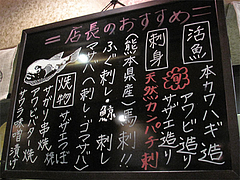 ＝店長のおすすめ＝
活魚
本カワハギ造
アワビ造り
サザエ造り
刺身
天然カンパチ刺
(熊本県産)馬刺!!
ふぐ刺し・鯨刺し
アマエビ刺し・ゴマサバ
焼物
サザエつぼ焼
アワビバター焼
サガリ串焼
サワラ味噌漬け